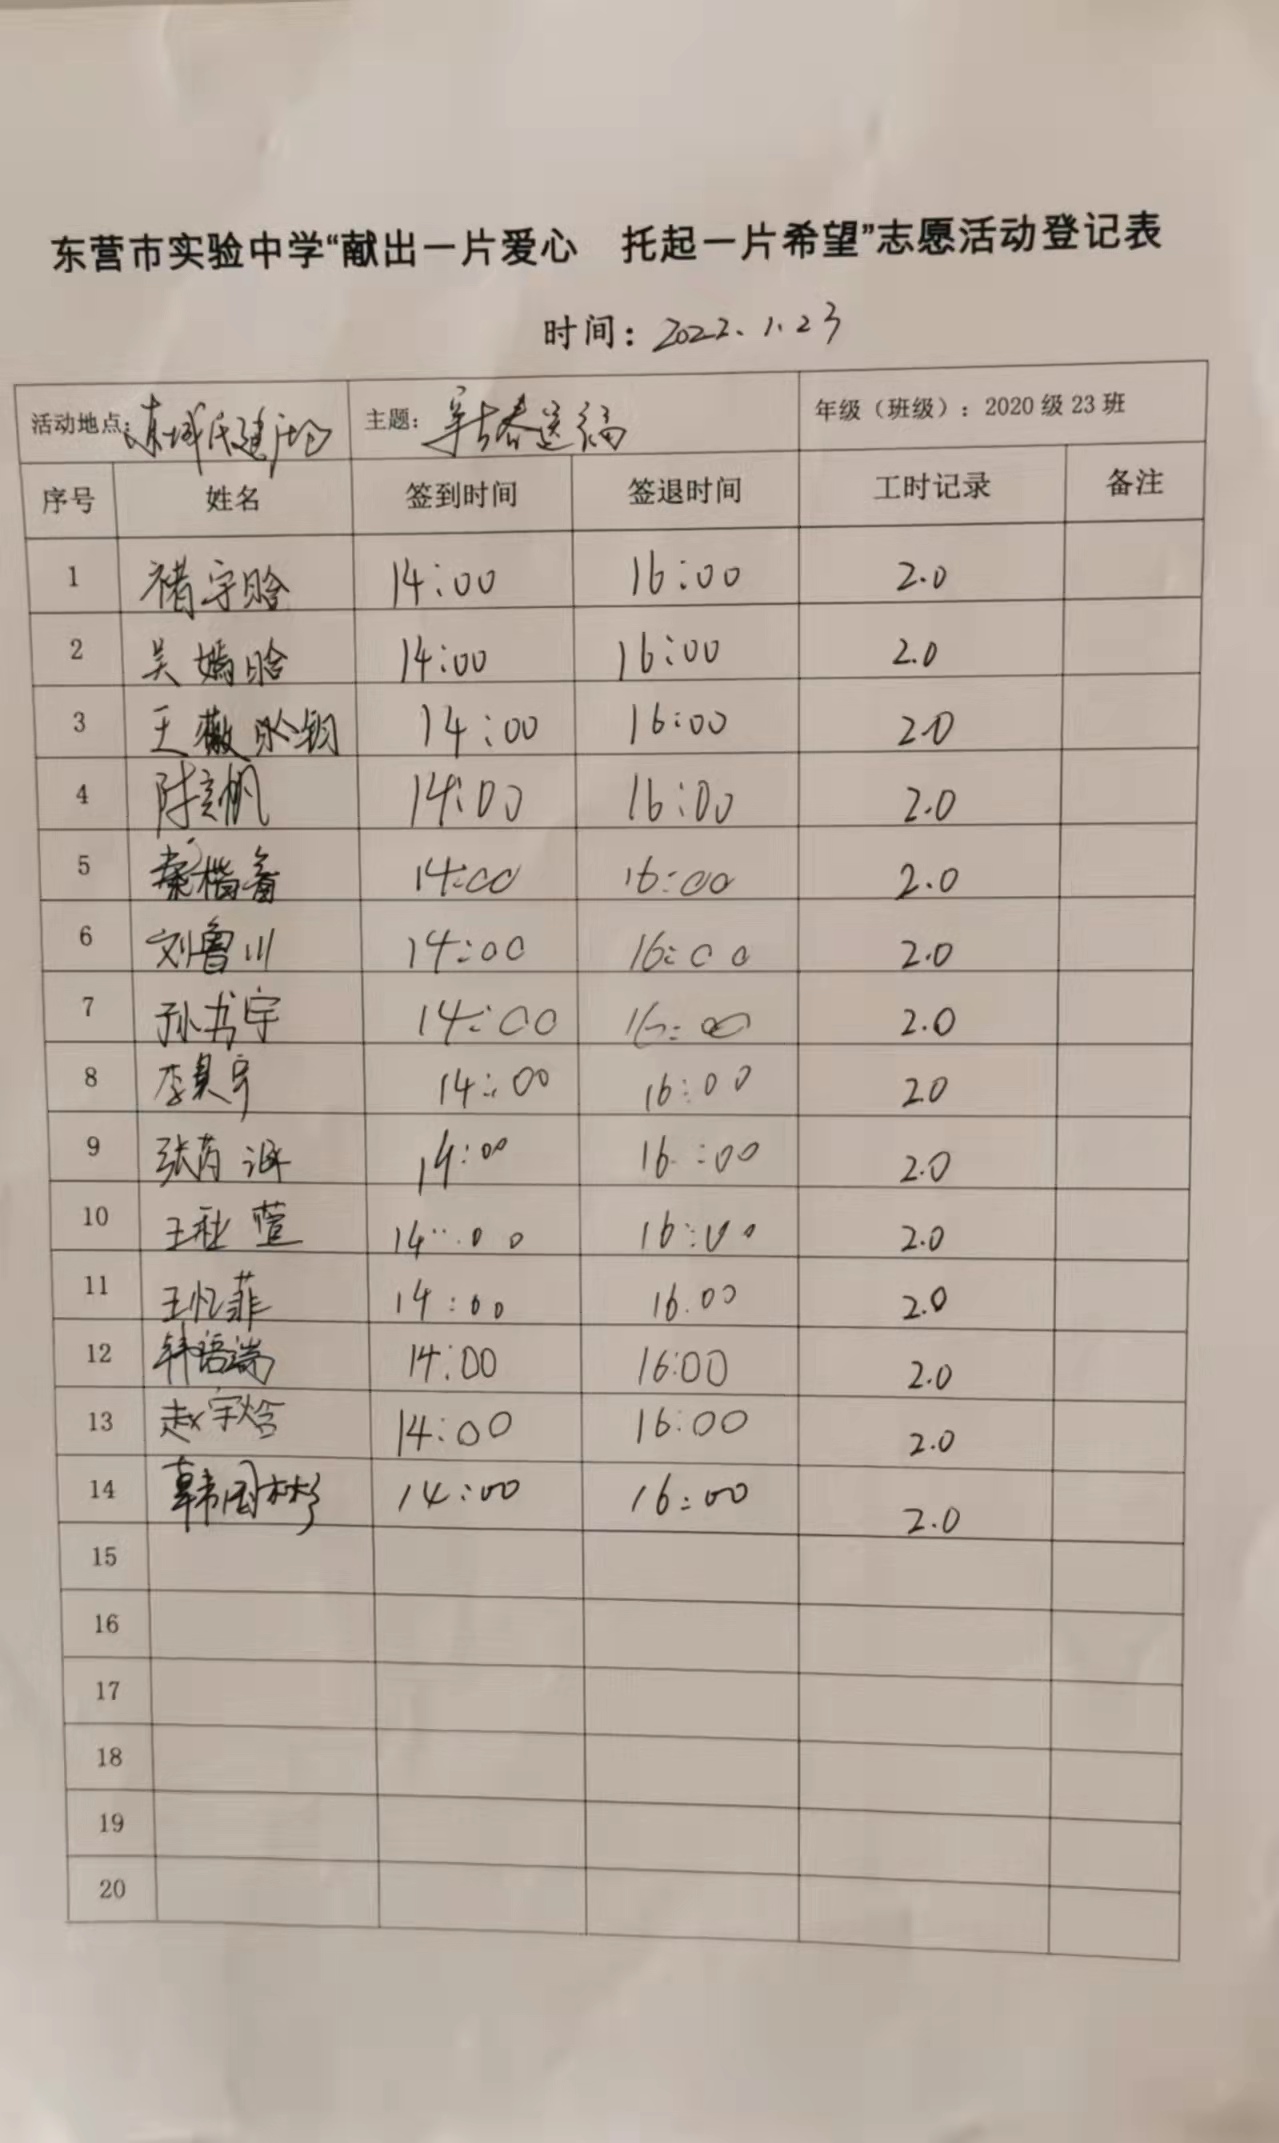 东营市实验中学“献出一片爱心 托起一片希望”志愿活动登记表
时间：2022.1.23
活动地点：东城氏建广场 主题：新春送福 年级（班级）：2020级23班
序号 姓名 签到时间 签退时间 工时记录 备注
1 褚宇晗 14:00 16:00 2.0
2 吴嫣晗 14:00 16:00 2.0
3 王薇 14:00 16:00 2.0
4 陈彦帆 14:00 16:00 2.0
5 14:00 16:00 2.0
6 刘鲁川 14:00 16:00 2.0
7 孙书宇 14:00 16:00 2.0
8 李昊宇 14:00 16:00 2.0
9 张芮 14:00 16:00 2.0
10 王 萱 14:00 16:00 2.0
11 王忆菲 14:00 16.00 2.0
12 韩语端 14:00 16:00 2.0
13 赵宇焓 14:00 16:00 2.0
14 韩国彬 14:00 16:00 2.0
15
16
17
18
19
20